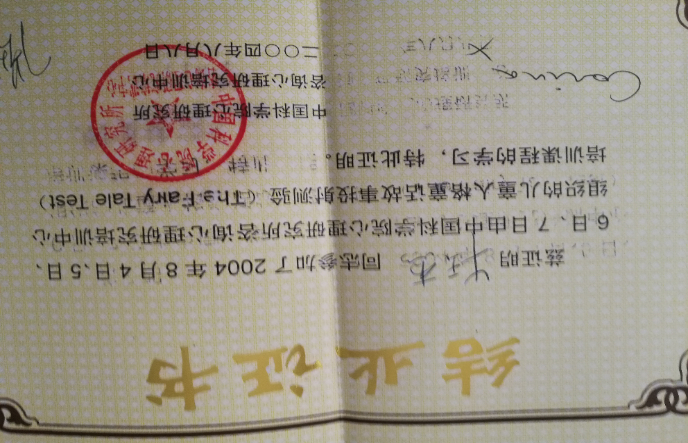 结业证书
兹证明 同志参加了 2004 年 8 月 4 日、5 日、
6 日、7 日由中国科学院心理研究所咨询心理研究培训中心
组织的儿童人格童话故事投射测验（The Fairy Tale Test）
培训课程的学习，特此证明。
中国科学院心理研究所
咨询心理研究培训中心
二〇〇四年八月八日
Corina